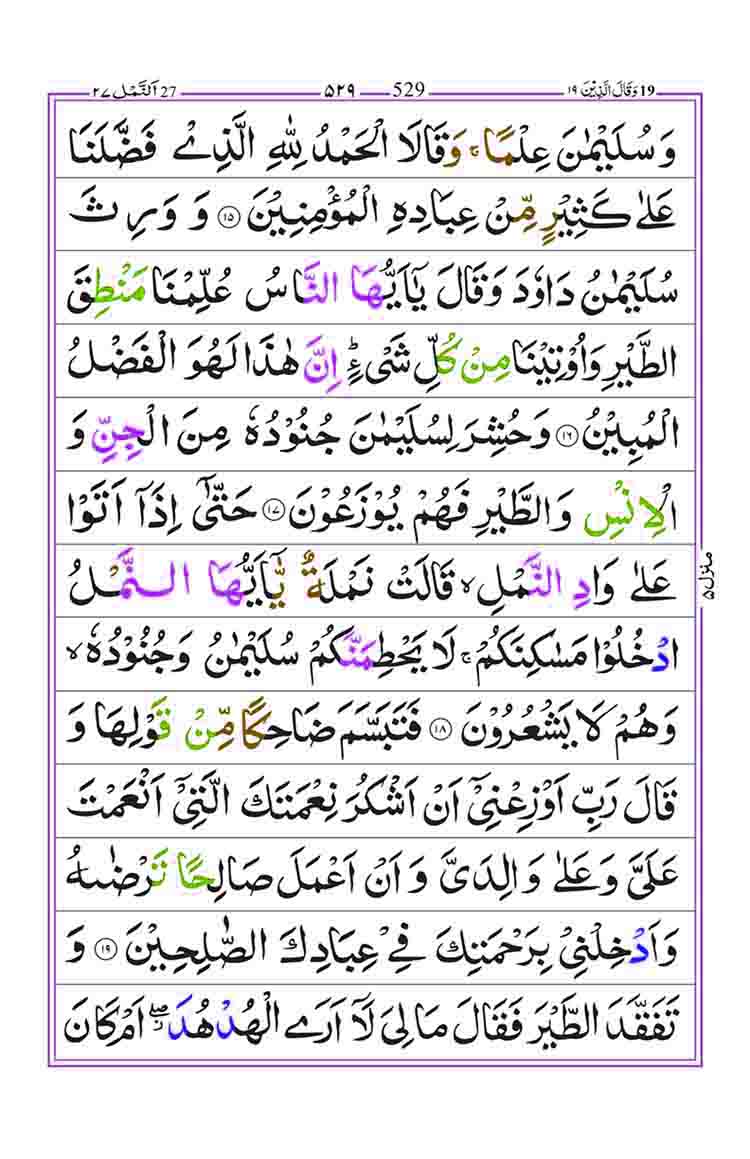 19 وَقَالَ الَّذِیْنَ ۱۹ 529 ۵۲۹ 27 اَلنَّمْل ۲۷
وَ سُلَیْمٰنَ عِلْمًا ۚ وَ قَالَا الْحَمْدُ لِلّٰهِ الَّذِیْ فَضَّلَنَا
عَلٰی کَثِیْرٍ مِّنْ عِبَادِهِ الْمُؤْمِنِیْنَ ۝۱۵ وَ وَرِثَ
سُلَیْمٰنُ دَاوٗدَ وَ قَالَ یٰۤاَیُّهَا النَّاسُ عُلِّمْنَا مَنْطِقَ
الطَّیْرِ وَ اُوْتِیْنَا مِنْ کُلِّ شَیْءٍ ؕ اِنَّ هٰذَا لَهُوَ الْفَضْلُ
الْمُبِیْنُ ۝۱۶ وَ حُشِرَ لِسُلَیْمٰنَ جُنُوْدُهٗ مِنَ الْجِنِّ وَ
الْاِنْسِ وَ الطَّیْرِ فَهُمْ یُوْزَعُوْنَ ۝۱۷ حَتّٰۤی اِذَاۤ اَتَوْا
عَلٰی وَادِ النَّمْلِ ۙ قَالَتْ نَمْلَةٌ یّٰۤاَیُّهَا النَّمْلُ
ادْخُلُوْا مَسٰکِنَکُمْ ۚ لَا یَحْطِمَنَّکُمْ سُلَیْمٰنُ وَ جُنُوْدُهٗ ۙ
وَ هُمْ لَا یَشْعُرُوْنَ ۝۱۸ فَتَبَسَّمَ ضَاحِکًا مِّنْ قَوْلِهَا وَ
قَالَ رَبِّ اَوْزِعْنِیْۤ اَنْ اَشْکُرَ نِعْمَتَكَ الَّتِیْۤ اَنْعَمْتَ
عَلَیَّ وَ عَلٰی وَالِدَیَّ وَ اَنْ اَعْمَلَ صَالِحًا تَرْضٰىهُ
وَ اَدْخِلْنِیْ بِرَحْمَتِكَ فِیْ عِبَادِكَ الصّٰلِحِیْنَ ۝۱۹ وَ
تَفَقَّدَ الطَّیْرَ فَقَالَ مَا لِیَ لَاۤ اَرَی الْهُدْهُدَ ۖ اَمْ کَانَ
منزل ۵